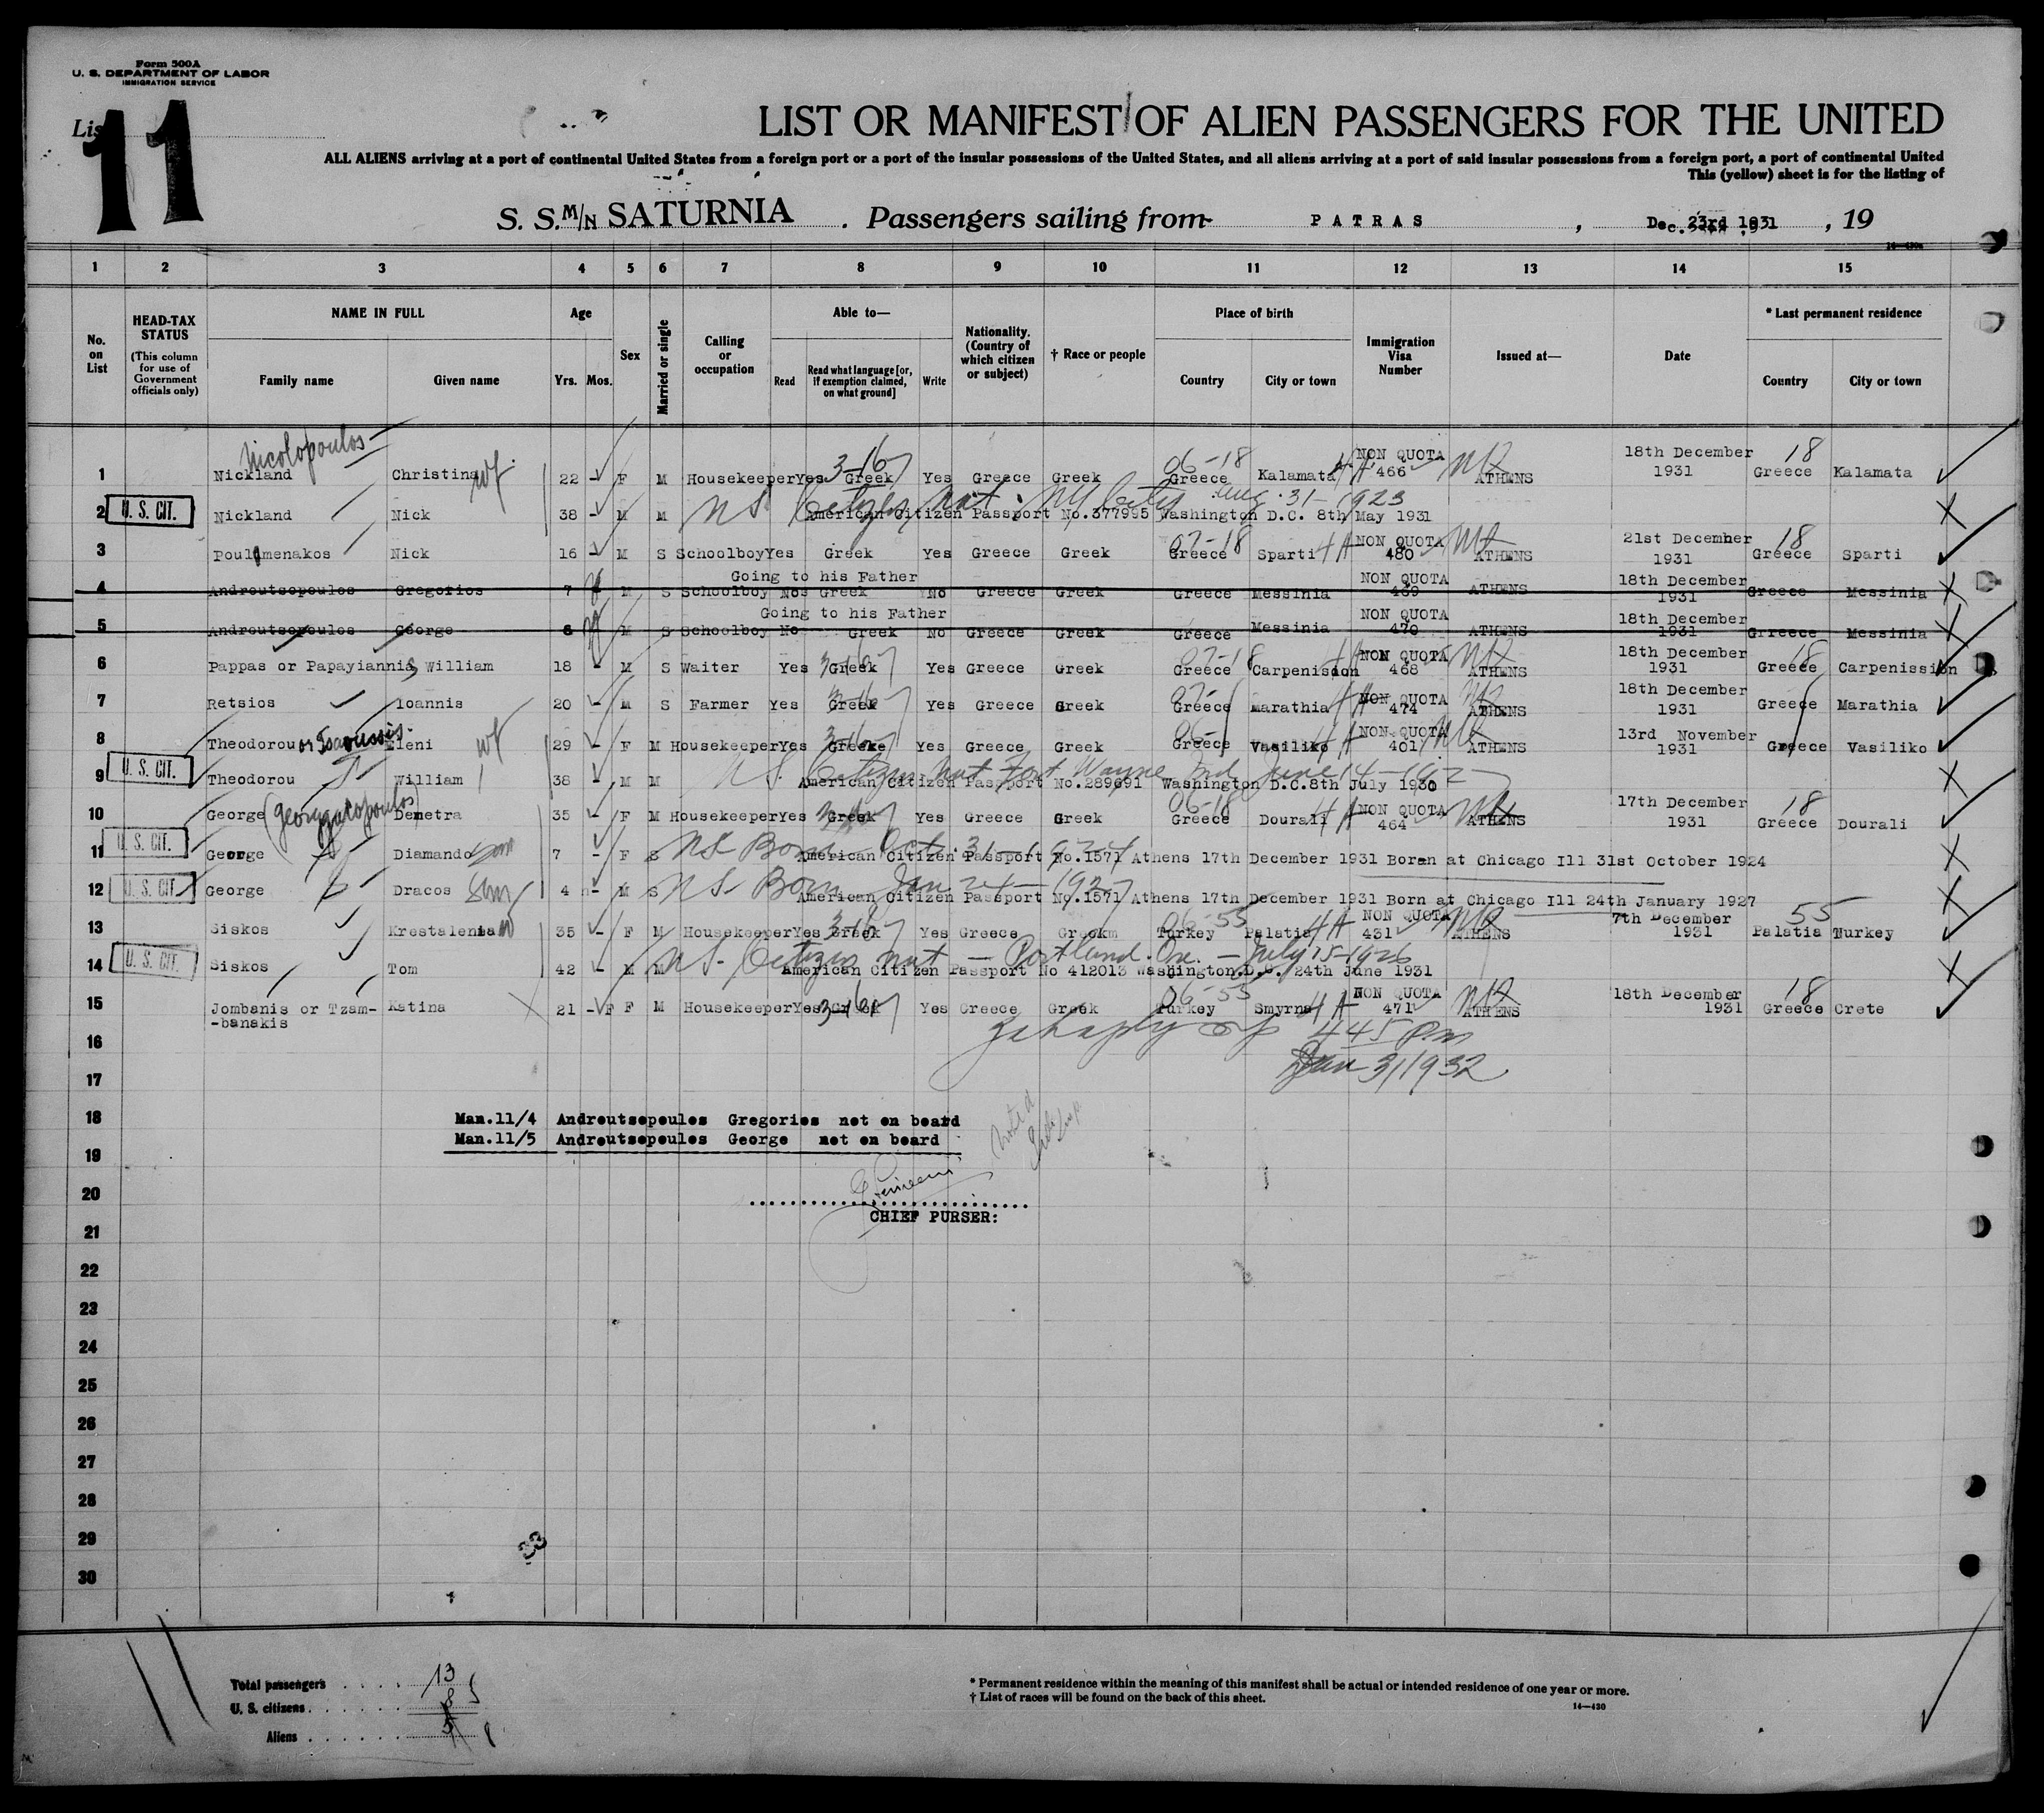 Form 500A
U. S. DEPARTMENT OF LABOR
IMMIGRATION SERVICE
Lis
11
LIST OR MANIFEST OF ALIEN PASSENGERS FOR THE UNITED
ALL ALIENS arriving at a port of continental United States from a foreign port or a port of the insular possessions of the United States, and all aliens arriving at a port of said insular possessions from a foreign port, a port of continental United
This (yellow) sheet is for the listing of
S. S. M/N SATURNIA . Passengers sailing from PATRAS , Dec. 23rd 1931 , 19
1 2 3 4 5 6 7 8 9 10 11 12 13 14 15
No. on List
HEAD-TAX STATUS (This column for use of Government officials only)
NAME IN FULL
Family name Given name
Age
Yrs. Mos.
Sex
Married or single
Calling or occupation
Able to—
Read Read what language [or, if exemption claimed, on what ground] Write
Nationality. (Country of which citizen or subject)
† Race or people
Place of birth
Country City or town
Immigration Visa Number
Issued at—
Date
* Last permanent residence
Country City or town
Nicolopoulos
1 Nickland Christina wf 22 - F M Housekeeper Yes Greek 3-16 Yes Greece Greek 06-18 Greece Kalamata 4A NON QUOTA 466 ATHENS 18th December 1931 18 Greece Kalamata
2 U. S. CIT. Nickland Nick 38 - M M NS Citizen Nat. NY City Aug. 31-1923
American Citizen Passport No.377995 Washington D.C. 8th May 1931
3 Poulamenakos Nick 16 - M S Schoolboy Yes Greek Yes Greece Greek 07-18 Greece Sparti 4A NON QUOTA 480 ATHENS 21st December 1931 18 Greece Sparti
Going to his Father
4 Androutsopoulos Gregorios 7 M S Schoolboy No Greek No Greece Greek Greece Messinia NON QUOTA 469 ATHENS 18th December 1931 Greece Messinia
Going to his Father
5 Androutsopoulos George 8 M S Schoolboy No Greek No Greece Greek Greece Messinia NON QUOTA 470 ATHENS 18th December 1931 Grreece Messinia
6 Pappas or Papayiannis William 18 - M S Waiter Yes Greek Yes Greece Greek 07-18 Greece Carpenision 4A NON QUOTA 468 ATHENS 18th December 1931 18 Greece Carpenission
7 Retsios Ioannis 20 - M S Farmer Yes Greek Yes Greece Greek Greece Marathia 4A NON QUOTA 474 ATHENS 18th December 1931 Greece Marathia
8 Theodorou or Tsaoussis Eleni wf 29 - F M Housekeeper Yes Greeke Yes Greece Greek Greece Vasiliko 4A NON QUOTA 401 ATHENS 13rd November 1931 Greece Vasiliko
9 U. S. CIT. Theodorou William 38 - M M NS. Citizen Nat Fort Wayne Ind June 14
American Citizen Passport No.289691 Washington D.C.8th July 1930
10 George (Georgacopoulos) Demetra 35 - F M Housekeeper Yes Greek Yes Greece Greek 06-18 Greece Dourali 4A NON QUOTA 464 ATHENS 17th December 1931 18 Greece Dourali
11 U. S. CIT. George Diamando 7 - F S NS Born Oct. 31-1924
American Citizen Passport No.1571 Athens 17th December 1931 Boran at Chicago Ill 31st October 1924
12 U. S. CIT. George Dracos 4 - M S NS- Born Jan 24-1927
American Citizen Passport No.1571 Athens 17th December 1931 Born at Chicago Ill 24th January 1927
13 Siskos Krestalenia 35 - F M Housekeeper Yes Greek Yes Greece Greekm 06-55 Turkey Palatia 4A NON QUOTA 431 ATHENS 7th December 1931 55 Palatia Turkey
14 U. S. CIT. Siskos Tom 42 - M M NS. Citizen Nat — Portland. Ore. — July 15-1926
American Citizen Passport No 412013 Washington.D.C. 24th June 1931
15 Jombanis or Tzam- Katina 21 - F F M Housekeeper Yes Greek Yes Greece Greek 06-55 Turkey Smyrna 4A NON QUOTA 471 ATHENS 18th December 1931 18 Greece Crete
-banakis
16 445 Pm
17 Jan 3/1932
18 Man.11/4 Androutsopoulos Gregorios not on board
Man.11/5 Androutsopoulos George not on board
19
20
CHIEF PURSER:
21
22
23
24
25
26
27
28
29
30
33
Total passengers 13
U. S. citizens 5
Aliens 8
* Permanent residence within the meaning of this manifest shall be actual or intended residence of one year or more.
† List of races will be found on the back of this sheet.
14—430